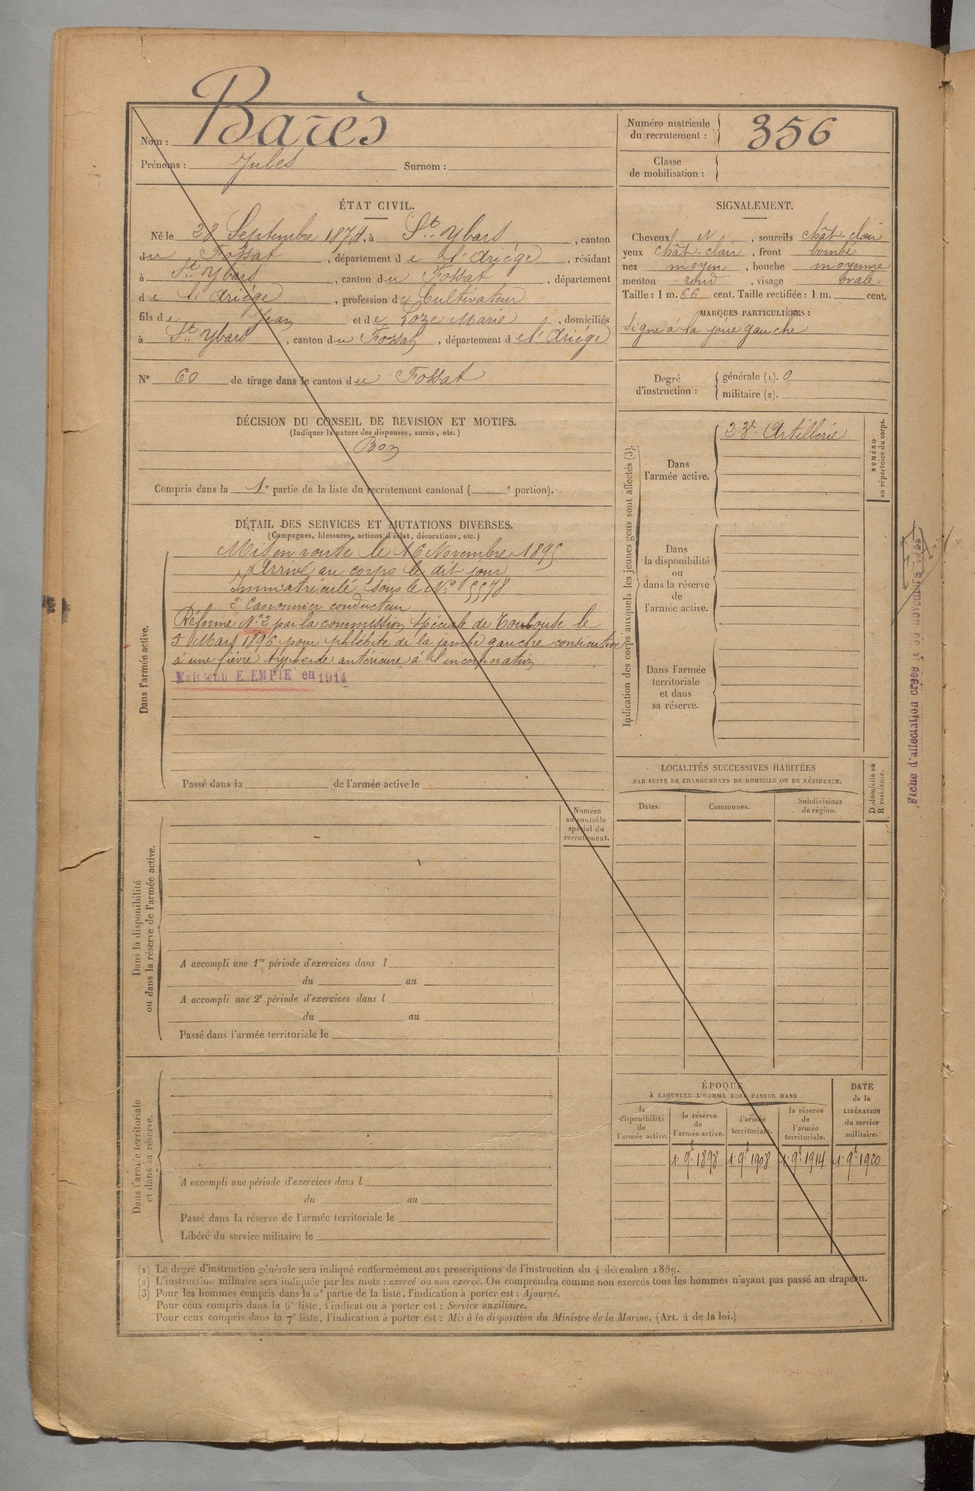 Nom : Barès
Prénoms : Jules Surnom :
Numéro matricule du recrutement : 356
Classe de mobilisation :
ÉTAT CIVIL.
Né le 28 Septembre 1874, à St Ybars, canton
du Fossat, département de l'Ariège, résidant
à St Ybars, canton du Fossat, département
de l'Ariège, profession de Cultivateur
fils de Jean et de Loze Marie, domiciliés
à St Ybars, canton du Fossat, département de l'Ariège
N° 60 de tirage dans le canton du Fossat
SIGNALEMENT.
Cheveux, sourcils chât clair
yeux chât. clair, front bombé
nez moyen, bouche moyenne
menton rond, visage ovale
Taille : 1 m. 66 cent. Taille rectifiée : 1 m. cent.
MARQUES PARTICULIÈRES :
Signe à la joue gauche
Degré d'instruction : générale (1). 0
militaire (2).
DÉCISION DU CONSEIL DE REVISION ET MOTIFS.
(Indiquer la nature des dispenses, sursis, etc.)
Bon
Compris dans la 1e partie de la liste du recrutement cantonal ( e portion).
DÉTAIL DES SERVICES ET MUTATIONS DIVERSES.
(Campagnes, blessures, actions d'éclat, décorations, etc.)
Dans l'armée active.
Mis en route le 16 Novembre 1895
Arrivé au corps le dit jour
Immatriculé sous le N°
2e Canonnier conducteur
Réformé N° 2 par la commission spéciale de Toulouse le
5 Mars 1896 pour phlébite de la jambe gauche consécutive
à une fièvre typhoïde antérieure à l'incorporation
Maintenu EXEMPTÉ en 1914
Passé dans la de l'armée active le
Indication des corps auxquels les jeunes gens sont affectés (3).
NUMÉRO au répertoire du corps.
Dans l'armée active.
23e Artillerie
Dans la disponibilité ou dans la réserve de l'armée active.
Dans l'armée territoriale et dans sa réserve.
LOCALITÉS SUCCESSIVES HABITÉES
PAR SUITE DE CHANGEMENTS DE DOMICILE OU DE RÉSIDENCE.
Dates. Communes. Subdivisions de région. D. domicile ou R. résidence.
Numéro au contrôle spécial du recrutement.
Dans la disponibilité ou dans la réserve de l'armée active.
A accompli une 1re période d'exercices dans l
du au
A accompli une 2e période d'exercices dans l
du au
Passé dans l'armée territoriale le
Dans l'armée territoriale et dans sa réserve.
A accompli une période d'exercices dans l
du au
Passé dans la réserve de l'armée territoriale le
Libéré du service militaire le
ÉPOQUE
À LAQUELLE L'HOMME DOIT PASSER DANS
la disponibilité de l'armée active.
la réserve de l'armée active.
l'armée territoriale.
la réserve de l'armée territoriale.
DATE de la LIBÉRATION du service militaire.
1 9e 1898 1 9e 1908 1 9e 1914 1 9e 1920
(1) Le degré d'instruction générale sera indiqué conformément aux prescriptions de l'instruction du 4 décembre 1889.
(2) L'instruction militaire sera indiquée par les mots : exercé ou non exercé. On comprendra comme non exercés tous les hommes n'ayant pas passé au drapeau.
(3) Pour les hommes compris dans la 5e partie de la liste, l'indication à porter est : Ajourné.
Pour ceux compris dans la 6e liste, l'indication à porter est : Service auxiliaire.
Pour ceux compris dans la 7e liste, l'indication à porter est : Mis à la disposition du Ministre de la Marine. (Art. 4 de la loi.)
Fiche d'affectation créée